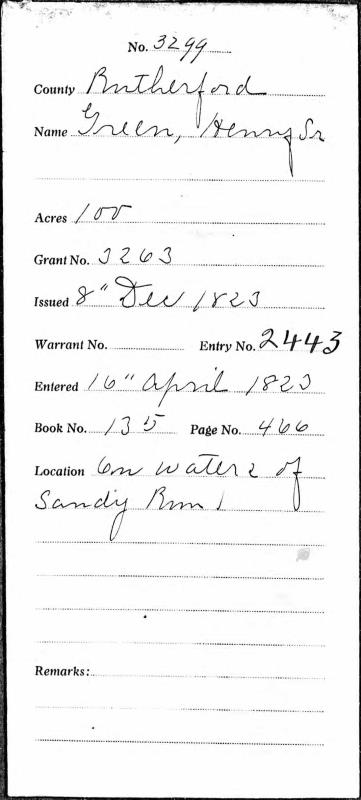 No. 3299
County Rutherford
Name Green, Henry Sr
Acres 100
Grant No. 3263
Issued 8" Dec 1823
Warrant No. Entry No. 2443
Entered 16" April 1823
Book No. 135 Page No. 466
Location On waters of
Sandy Run
Remarks: